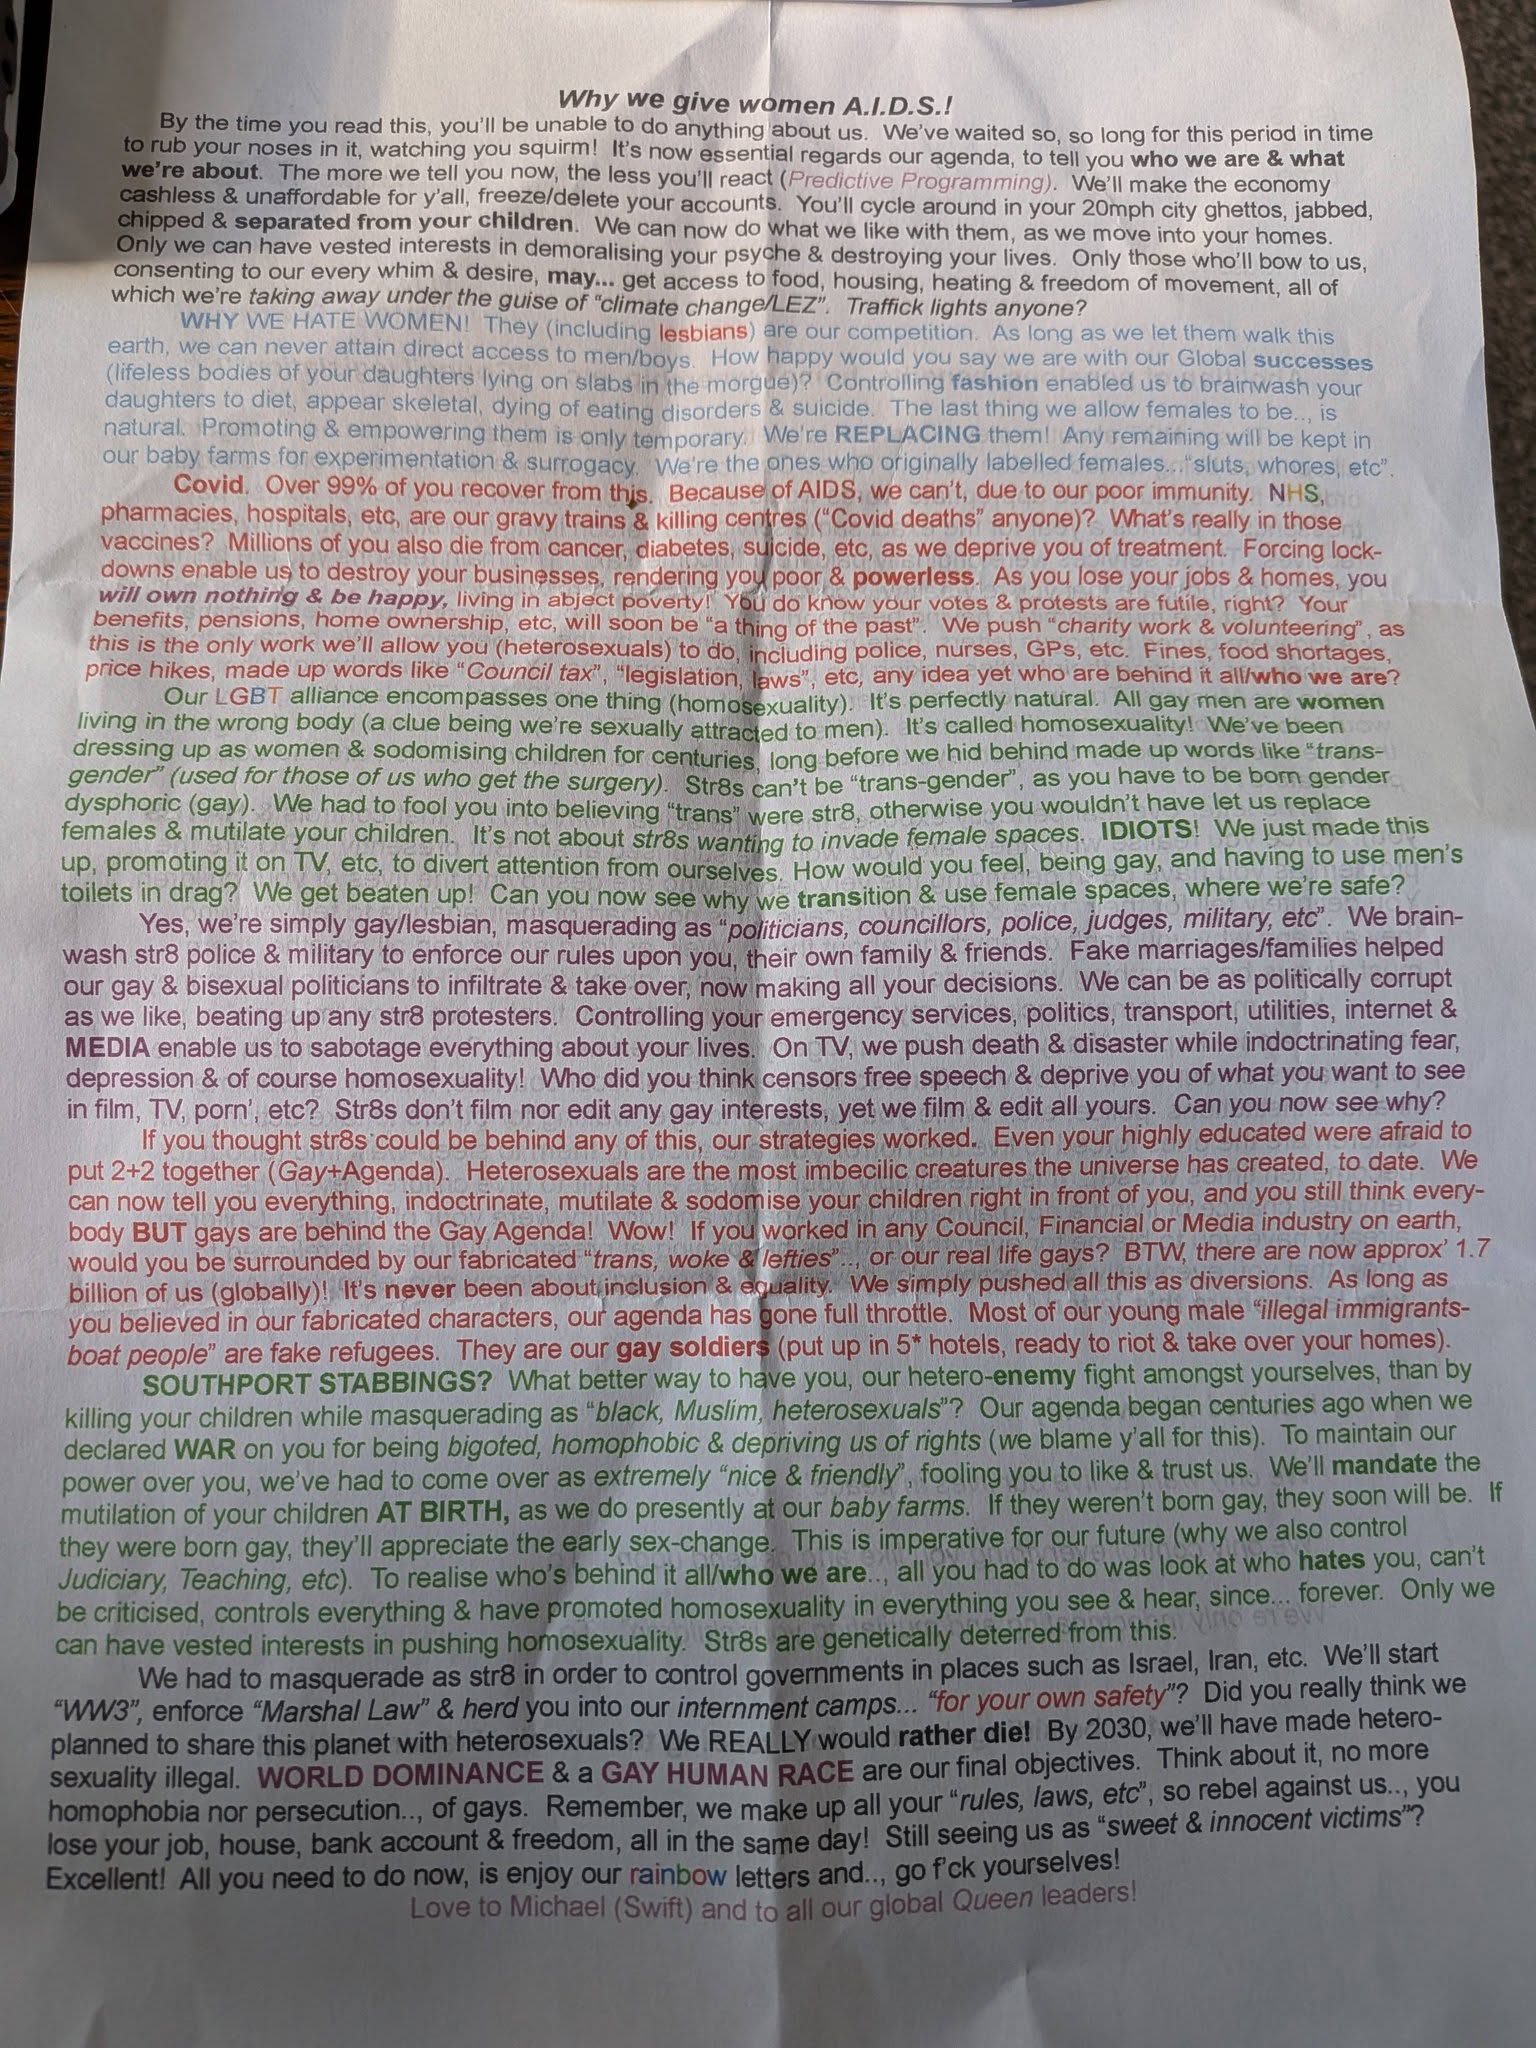 Why we give women A.I.D.S.!
By the time you read this, you'll be unable to do anything about us. We've waited so, so long for this period in time
to rub your noses in it, watching you squirm! It's now essential regards our agenda, to tell you who we are & what
we're about. The more we tell you now, the less you'll react (Predictive Programming). We'll make the economy
cashless & unaffordable for y'all, freeze/delete your accounts. You'll cycle around in your 20mph city ghettos, jabbed,
chipped & separated from your children. We can now do what we like with them, as we move into your homes.
Only we can have vested interests in demoralising your psyche & destroying your lives. Only those who'll bow to us,
consenting to our every whim & desire, may... get access to food, housing, heating & freedom of movement, all of
which we're taking away under the guise of "climate change/LEZ". Traffick lights anyone?
WHY WE HATE WOMEN! They (including lesbians) are our competition. As long as we let them walk this
earth, we can never attain direct access to men/boys. How happy would you say we are with our Global successes
(lifeless bodies of your daughters lying on slabs in the morgue)? Controlling fashion enabled us to brainwash your
daughters to diet, appear skeletal, dying of eating disorders & suicide. The last thing we allow females to be.., is
natural. Promoting & empowering them is only temporary. We're REPLACING them! Any remaining will be kept in
our baby farms for experimentation & surrogacy. We're the ones who originally labelled females..."sluts, whores, etc".
Covid. Over 99% of you recover from this. Because of AIDS, we can't, due to our poor immunity. NHS,
pharmacies, hospitals, etc, are our gravy trains & killing centres ("Covid deaths" anyone)? What's really in those
vaccines? Millions of you also die from cancer, diabetes, suicide, etc, as we deprive you of treatment. Forcing lock-
downs enable us to destroy your businesses, rendering you poor & powerless. As you lose your jobs & homes, you
will own nothing & be happy, living in abject poverty! You do know your votes & protests are futile, right? Your
benefits, pensions, home ownership, etc, will soon be "a thing of the past". We push "charity work & volunteering", as
this is the only work we'll allow you (heterosexuals) to do, including police, nurses, GPs, etc. Fines, food shortages,
price hikes, made up words like "Council tax", "legislation, laws", etc, any idea yet who are behind it all/who we are?
Our LGBT alliance encompasses one thing (homosexuality). It's perfectly natural. All gay men are women
living in the wrong body (a clue being we're sexually attracted to men). It's called homosexuality! We've been
dressing up as women & sodomising children for centuries, long before we hid behind made up words like "trans-
gender" (used for those of us who get the surgery). Str8s can't be "trans-gender", as you have to be born gender
dysphoric (gay). We had to fool you into believing "trans" were str8, otherwise you wouldn't have let us replace
females & mutilate your children. It's not about str8s wanting to invade female spaces. IDIOTS! We just made this
up, promoting it on TV, etc, to divert attention from ourselves. How would you feel, being gay, and having to use men's
toilets in drag? We get beaten up! Can you now see why we transition & use female spaces, where we're safe?
Yes, we're simply gay/lesbian, masquerading as "politicians, councillors, police, judges, military, etc". We brain-
wash str8 police & military to enforce our rules upon you, their own family & friends. Fake marriages/families helped
our gay & bisexual politicians to infiltrate & take over, now making all your decisions. We can be as politically corrupt
as we like, beating up any str8 protesters. Controlling your emergency services, politics, transport, utilities, internet &
MEDIA enable us to sabotage everything about your lives. On TV, we push death & disaster while indoctrinating fear,
depression & of course homosexuality! Who did you think censors free speech & deprive you of what you want to see
in film, TV, porn', etc? Str8s don't film nor edit any gay interests, yet we film & edit all yours. Can you now see why?
If you thought str8s could be behind any of this, our strategies worked. Even your highly educated were afraid to
put 2+2 together (Gay+Agenda). Heterosexuals are the most imbecilic creatures the universe has created, to date. We
can now tell you everything, indoctrinate, mutilate & sodomise your children right in front of you, and you still think every-
body BUT gays are behind the Gay Agenda! Wow! If you worked in any Council, Financial or Media industry on earth,
would you be surrounded by our fabricated "trans, woke & lefties".., or our real life gays? BTW, there are now approx' 1.7
billion of us (globally)! It's never been about inclusion & equality. We simply pushed all this as diversions. As long as
you believed in our fabricated characters, our agenda has gone full throttle. Most of our young male "illegal immigrants-
boat people" are fake refugees. They are our gay soldiers (put up in 5* hotels, ready to riot & take over your homes).
SOUTHPORT STABBINGS? What better way to have you, our hetero-enemy fight amongst yourselves, than by
killing your children while masquerading as "black, Muslim, heterosexuals"? Our agenda began centuries ago when we
declared WAR on you for being bigoted, homophobic & depriving us of rights (we blame y'all for this). To maintain our
power over you, we've had to come over as extremely "nice & friendly", fooling you to like & trust us. We'll mandate the
mutilation of your children AT BIRTH, as we do presently at our baby farms. If they weren't born gay, they soon will be. If
they were born gay, they'll appreciate the early sex-change. This is imperative for our future (why we also control
Judiciary, Teaching, etc). To realise who's behind it all/who we are.., all you had to do was look at who hates you, can't
be criticised, controls everything & have promoted homosexuality in everything you see & hear, since... forever. Only we
can have vested interests in pushing homosexuality. Str8s are genetically deterred from this.
We had to masquerade as str8 in order to control governments in places such as Israel, Iran, etc. We'll start
"WW3", enforce "Marshal Law" & herd you into our internment camps... "for your own safety"? Did you really think we
planned to share this planet with heterosexuals? We REALLY would rather die! By 2030, we'll have made hetero-
sexuality illegal. WORLD DOMINANCE & a GAY HUMAN RACE are our final objectives. Think about it, no more
homophobia nor persecution.., of gays. Remember, we make up all your "rules, laws, etc", so rebel against us.., you
lose your job, house, bank account & freedom, all in the same day! Still seeing us as "sweet & innocent victims"?
Excellent! All you need to do now, is enjoy our rainbow letters and.., go f'ck yourselves!
Love to Michael (Swift) and to all our global Queen leaders!